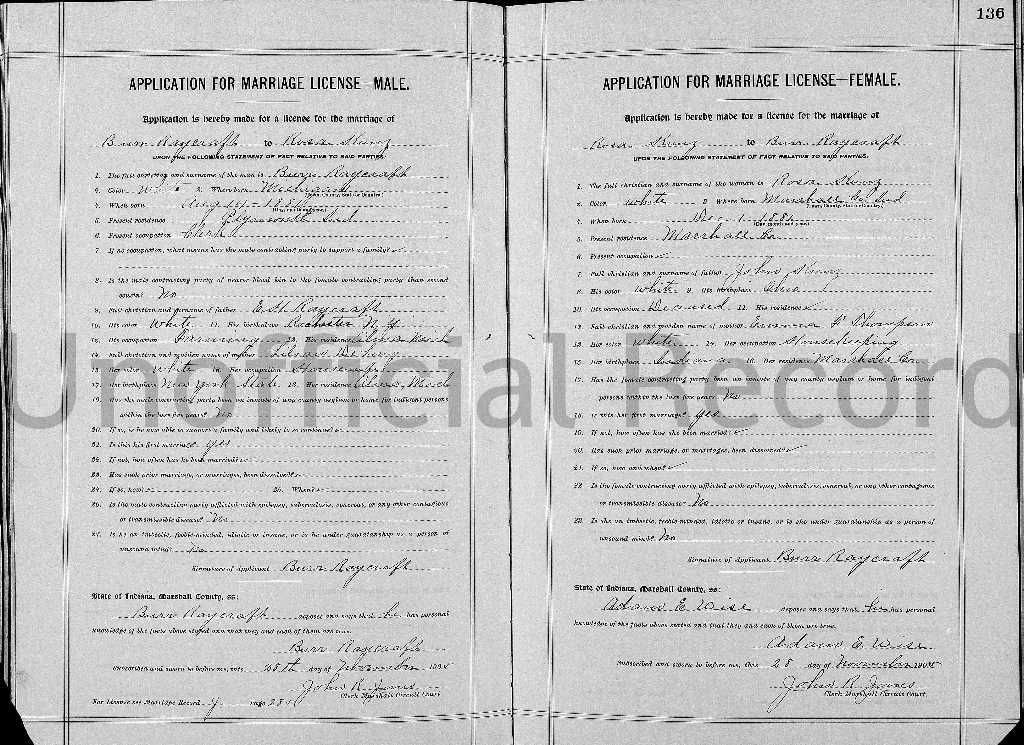 136
APPLICATION FOR MARRIAGE LICENSE—MALE.
Application is hereby made for a license for the marriage of
Burr Raycraft to Rosa
UPON THE FOLLOWING STATEMENT OF FACT RELATIVE TO SAID PARTIES.
1. The full christian and surname of the man is Burr Raycraft
2. Color White 3. Where born Michigan
4. When born Aug 14 -
5. Present residence Plymouth Ind
6. Present occupation Clerk
7. If no occupation, what means has the male contracting party to support a family?
8. Is the male contracting party of nearer blood kin to the female contracting party than second
cousin? No
9. Full christian and surname of father E. H. Raycraft
10. His color White 11. His birthplace Rochester N Y
12. His occupation Farming 13. His residence
14. Full christian and maiden name of mother
15. Her color White 16. Her occupation Housekeeping
17. Her birthplace New York State 18. Her residence Mich
19. Has the male contracting party been an inmate of any county asylum or home for indigent persons
within the last five years? No
20. If so, is he now able to support a family and likely to so continue?
21. Is this his first marriage? yes
22. If not, how often has he been married?
23. Has such prior marriage, or marriages, been dissolved?
24. If so, how? 25. When?
26. Is the male contracting party afflicted with epilepsy, tuberculosis, venereal, or any other contagious
or transmissible disease? No
27. Is he an imbecile, feeble-minded, idiotic or insane, or is he under guardianship as a person of
unsound mind? No
Signature of Applicant Burr Raycraft
State of Indiana, Marshall County, ss:
Burr Raycraft deposes and says that he has personal
knowledge of the facts above stated and that they and each of them are true.
Burr Raycraft
Subscribed and sworn to before me, this 28th day of November
John R. Jones
Clerk Marshall Circuit Court.
For License see Marriage Record page
APPLICATION FOR MARRIAGE LICENSE—FEMALE.
Application is hereby made for a license for the marriage of
Rosa to Burr Raycraft
UPON THE FOLLOWING STATEMENT OF FACT RELATIVE TO SAID PARTIES.
1. The full christian and surname of the woman is Rosa
2. Color White 3. Where born Marshall Co Ind
4. When born Dec 1
5. Present residence Marshall Co
6. Present occupation
7. Full christian and surname of father John
8. His color White 9. His birthplace Ohio
10. His occupation Deceased 11. His residence
12. Full christian and maiden name of mother Thompson
13. Her color White 14. Her occupation Housekeeping
15. Her birthplace Indiana 16. Her residence Marshall Co
17. Has the female contracting party been an inmate of any county asylum or home for indigent
persons within the last five years? No
18. Is this her first marriage? yes
19. If not, how often has she been married?
20. Has such prior marriage, or marriages, been dissolved?
21. If so, how and when?
22. Is the female contracting party afflicted with epilepsy, tuberculosis, venereal, or any other contagious
or transmissible disease? No
23. Is she an imbecile, feeble-minded, idiotic or insane, or is she under guardianship as a person of
unsound mind? No
Signature of Applicant Burr Raycraft
State of Indiana, Marshall County, ss:
Adam E. Wise deposes and says that he has personal
knowledge of the facts above stated and that they and each of them are true.
Adam E. Wise
Subscribed and sworn to before me, this 28 day of November
John R. Jones
Clerk Marshall Circuit Court.
Unofficial Record